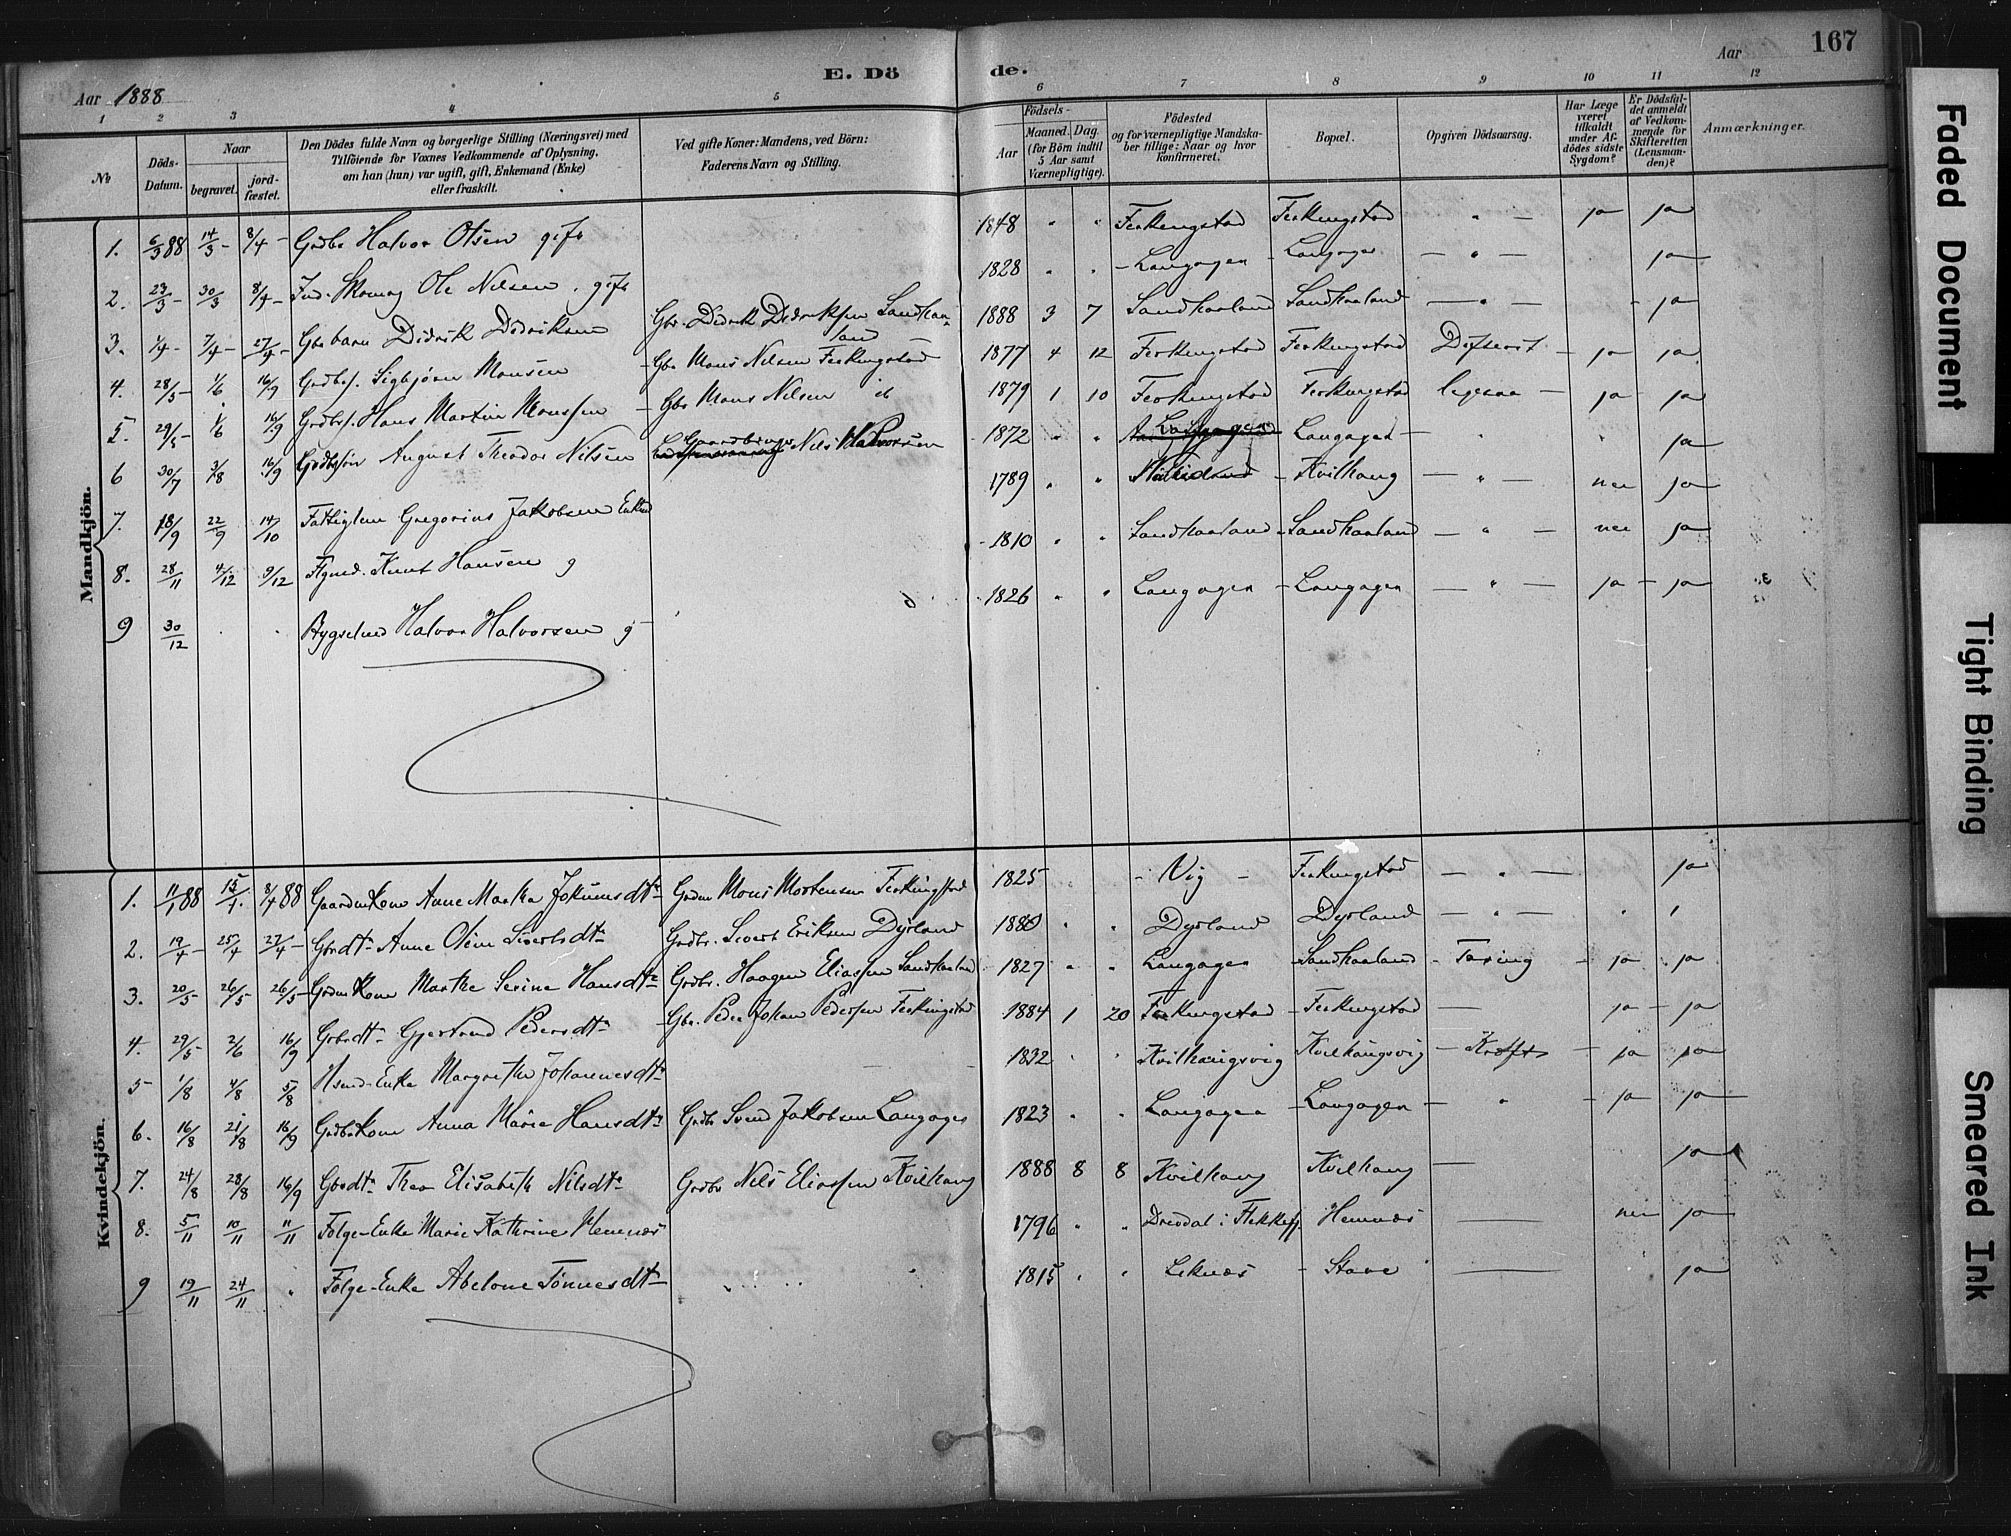 167
E. Dö de.
Aar 1888
Aar
1 2 3 4 5 6 7 8 9 10 11 12
No
Döds-Datum.
Naar
begravet.
jord-fæstet.
Den Dödes fulde Navn og borgerlige Stilling (Næringsvei) med
Tilföiende for Voxnes Vedkommende af Oplysning,
om han (hun) var ugift, gift, Enkemand (Enke)
eller fraskilt.
Ved gifte Koner: Mandens, ved Börn:
Faderens Navn og Stilling.
Födsels-
Aar
Maaned. Dag.
(for Börn indtil
5 Aar samt
Værnepligtige).
Födested
og for værnepligtige Mandska-
ber tillige: Naar og hvor
konfirmeret.
Bopæl.
Opgiven Dödsaarsag.
Har Læge
været
tilkaldt
under Af-
dödes sidste
Sygdom?
Er Dödsfal-
det anmeldt
af Vedkom-
mende for
Skifteretten
(Lensman-
den)?
Anmærkninger.
Mandkjön.
1. 6/3 88 14/3 - 8/4 - Grdbr Halvor Olsen gift 1848 " " Ferkingstad Ferkingstad " — ja ja
2. 23/3 - 30/3 8/4 - Ind. Skomag Ole Nilsen. gift 1828 " " - Langagen - Langagen — " — ja
3. 1/4 - 7/4 - 27/4 - Gbr barn Didrik Didriksen Gbr. Didrik Didriksen Sandhaaland 1888 3 7 Sandhaaland Sandhaaland — " — - ja
4. 28/5 - 1/6 16/9 Grdbrs. Sigbjörn Monsen Gbr Mons Nilsen Ferkingstad 1877 4 12 Ferkingstad Ferkingstad - ja ja
5. 29/5 - 1/6 16/9 Grdbrs. Hans Martin Monssen - Gbr Mons Nilsen ib 1879 1 10 Ferkingstad Ferkingstad ligesaa — ja - ja
6 30/7 3/8 16/9 Grdbrsön August Theodor Nilsen Gaardbruger Nils Halvorsen 1872 " " Langagen Langagen — " ja
7. 18/9 22/9 14/10 Fattiglem Gregorius Jakobsen Enkm 1789 " " - Kvilhaug — " — nei ja
8. 28/11 4/12 9/12 Knut Hansen g 1810 " " Sandhaaland - Sandhaaland — " — nei ja
9 30/12 Bygselmd Halvor Halvorsen g 1826 " " Langagen - Langagen — " — ja - ja
Kvindekjön.
1. 11/1 88 15/1. 8/4 88 Gaardmkone Anne Martha Jokumsdtr Grdm Mons Mortensen Ferkingstad 1825 - Vig - Ferkingstad — " — ja
2. 19/4 - 25/4 27/4 - Gbrdtr Anne Oline Sivertsdtr Grdbr. Sivert Eriksen Dyrland 1880 " " Dyrland Dyrland — " —
3. 20/5 - 26/5 - 26/5 - Grdmkone Marthe Serine Hansdtr Grdbr. Haagen Eliassen Sandhaaland 1827 " " Langagen - Sandhaaland - Tæring - ja ja
4. 29/5 - 2/6 16/9 Grbrdtr Gjertrud Pedersdtr Gbr. Peder Johan Pedersen Ferkingstad 1884 1 20 Ferkingstad - Ferkingstad — ja - ja
5 1/8 4/8 5/8 Hsmd-Enke Margrethe Johannesdtr 1832 " " Kvilhaugsvig Kvilhaugsvig - Kræft - ja ja
6. 16/8 21/8 16/9 Grdbrkone Anna Marie Hansdtr Grdbr Svend Jakobsen Langagen 1823 " " Langagen - Langagen — " - ja ja
7. 24/8 28/8 16/9 Gbrdtr Thea Elisabeth Nilsdtr Grdbr Nils Eliassen Kvilhaug 1888 8 8 Kvilhaug Kvilhaug — ja
8. 5/11 10/11 11/11 Folge-Enke Marie Kathrine Hemnæs 1796 " " Hemnæs — nei ja
9 19/11 24/11 " Folge-Enke Abelone Tönnesdtr 1815 " " Leknæs - Stave — ja
Faded Document
Tight Binding
Smeared Ink